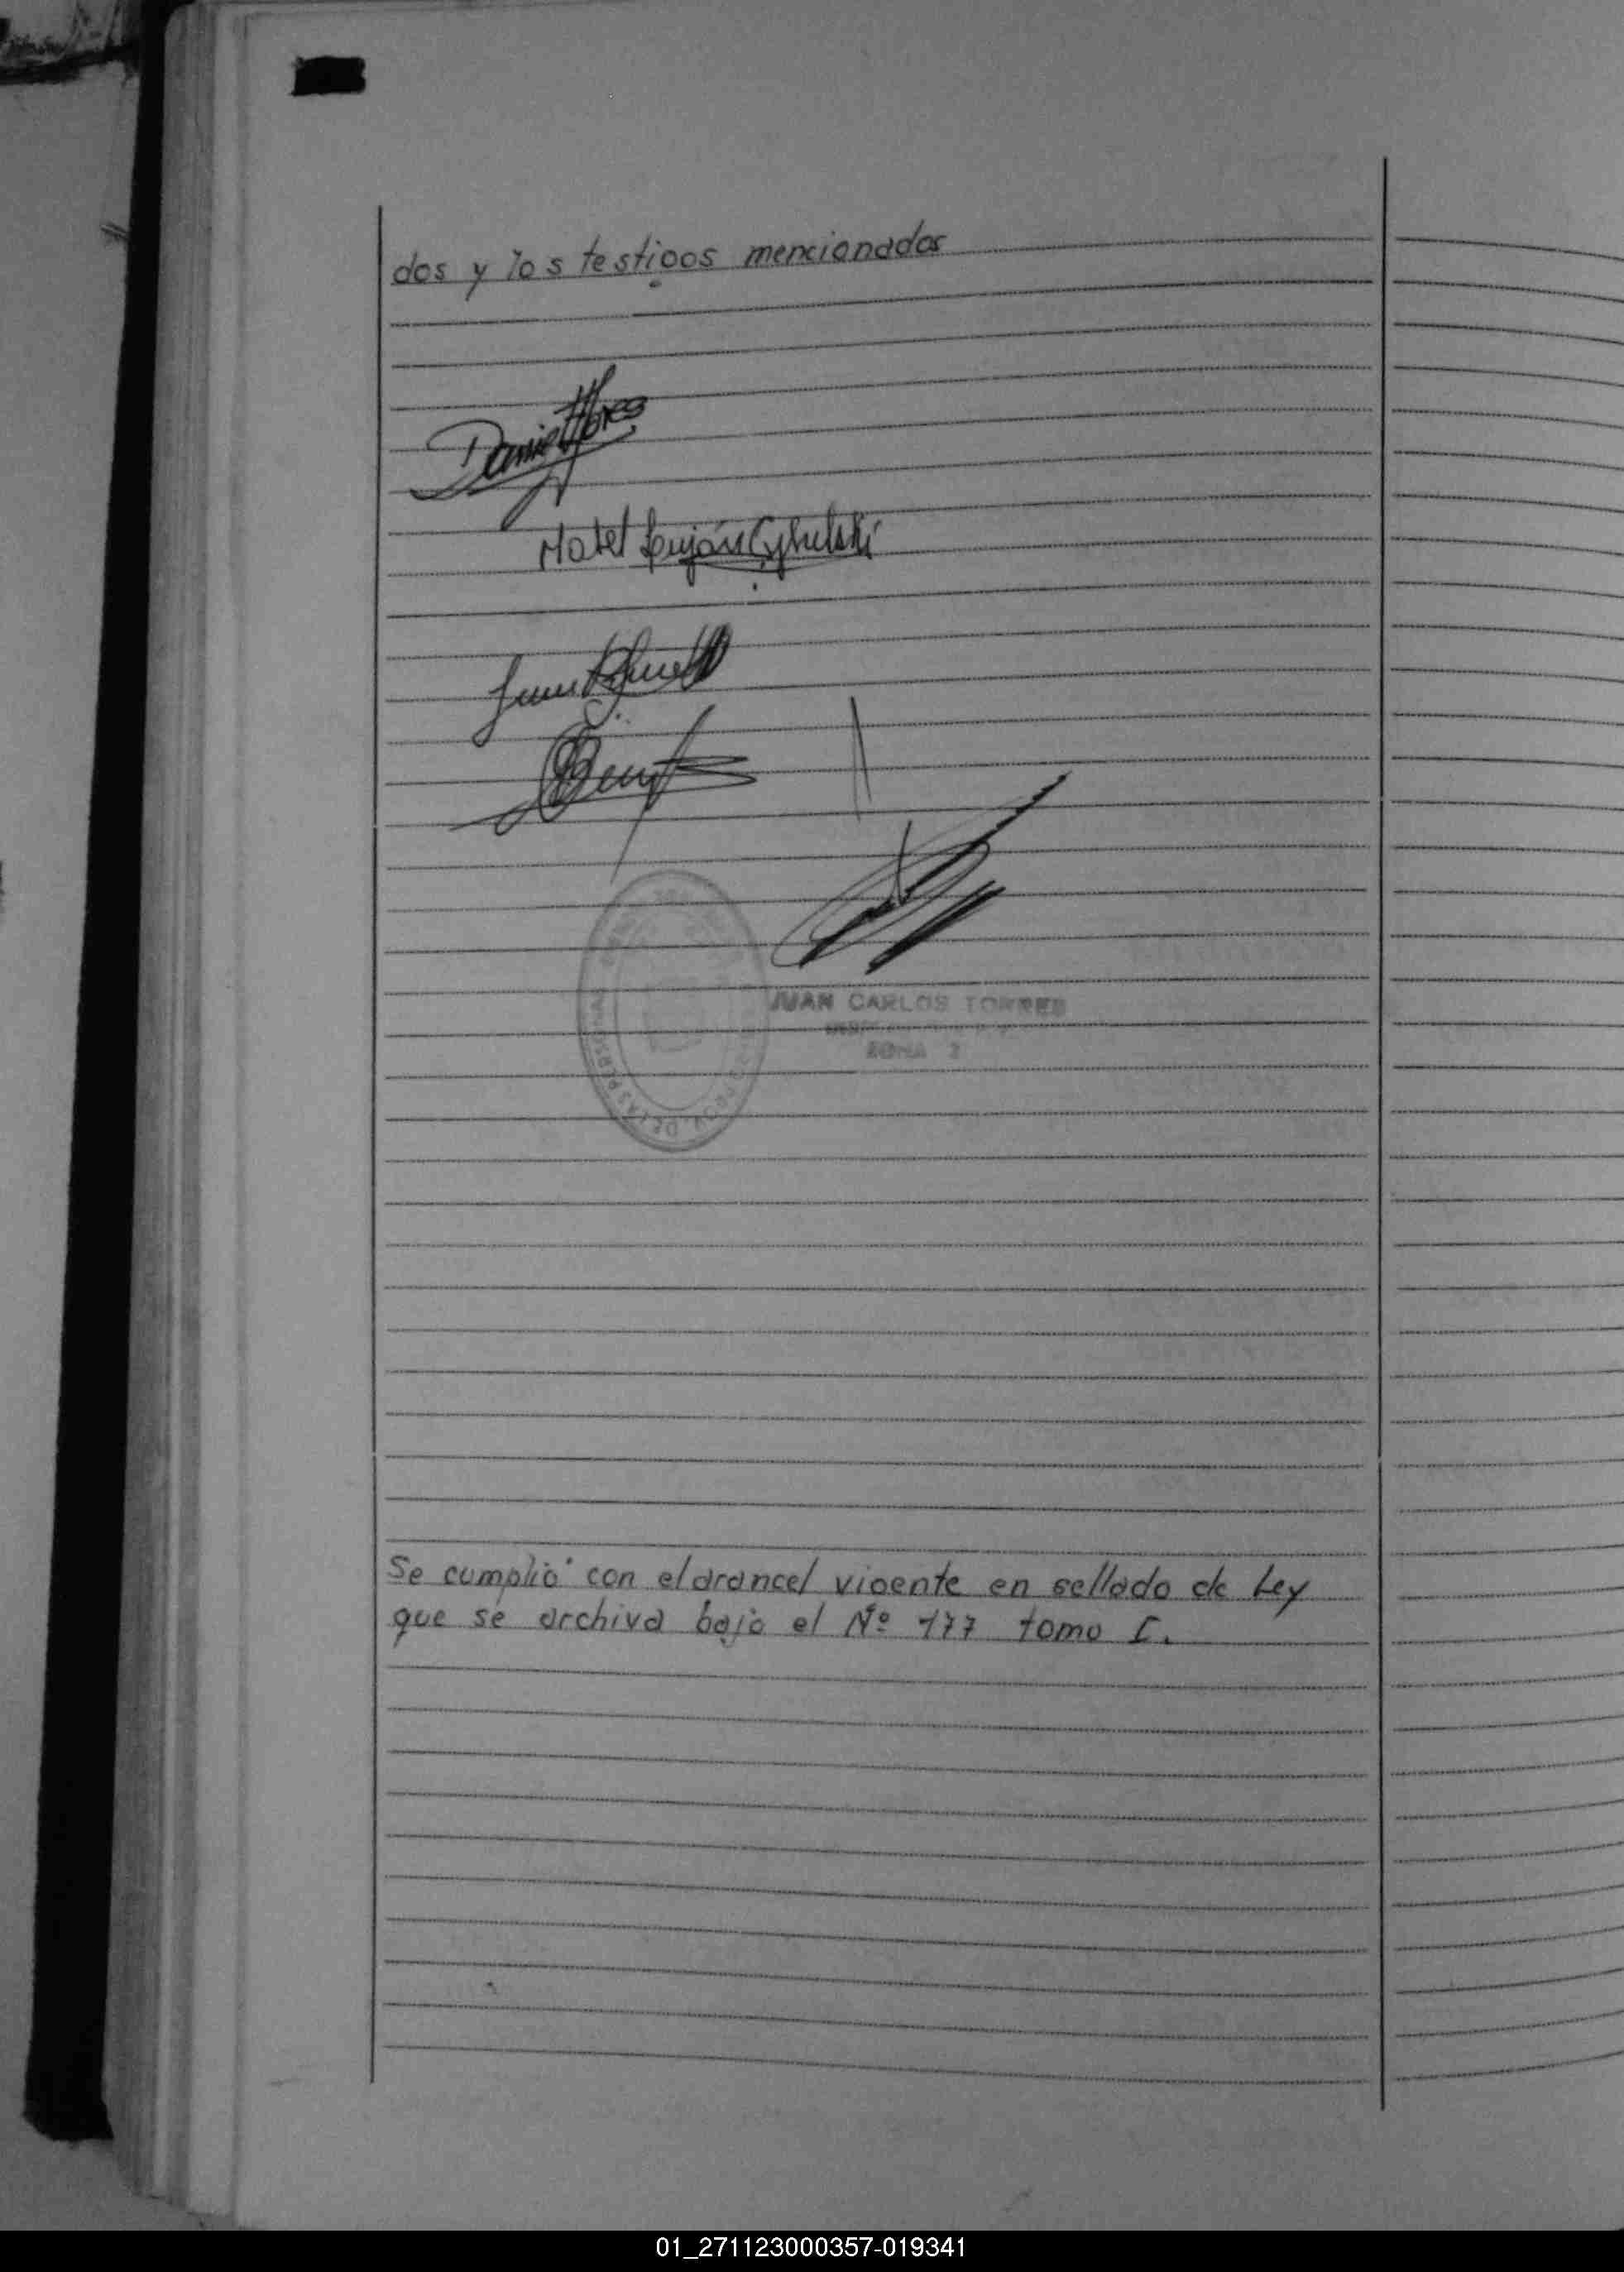 dos y los testigos mencionados
Daniel Flores
Mabel Luján Cybulski
JUAN CARLOS TORRES
ZONA 2
DE LAS PERSONAS
Se cumplió con el arancel vigente en sellado de Ley
que se archiva bajo el Nº 177 tomo I.
01_271123000357-019341